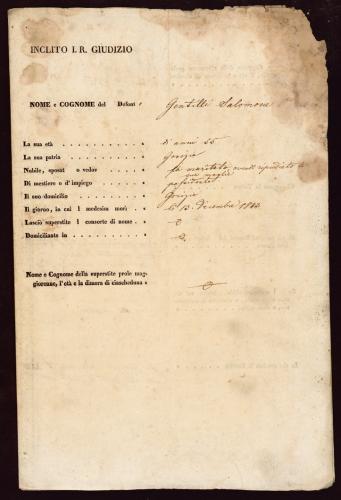 INCLITO I. R. GIUDIZIO
NOME e COGNOME del Defont ͤ Gentilli Salomone
La sua età . . . . . . . . . . . d'anni 55
La sua patria . . . . . . . . . . Gorizia
Nubile, sposat o vedov . . . . . . fu maritato, repudiato
sua moglie
Di mestiere o d'impiego . . . . . . possidente
Il suo domicilio . . . . . . . . . Gorizia
Il giorno, in cui l medesim morì . . li 13. Decembre
Lasciò superstite l consorte di nome . .
Domiciliante in . . . . . . . . .
Nome e Cognome della superstite prole mag-
giorenne, l'età e la dimora di ciascheduna